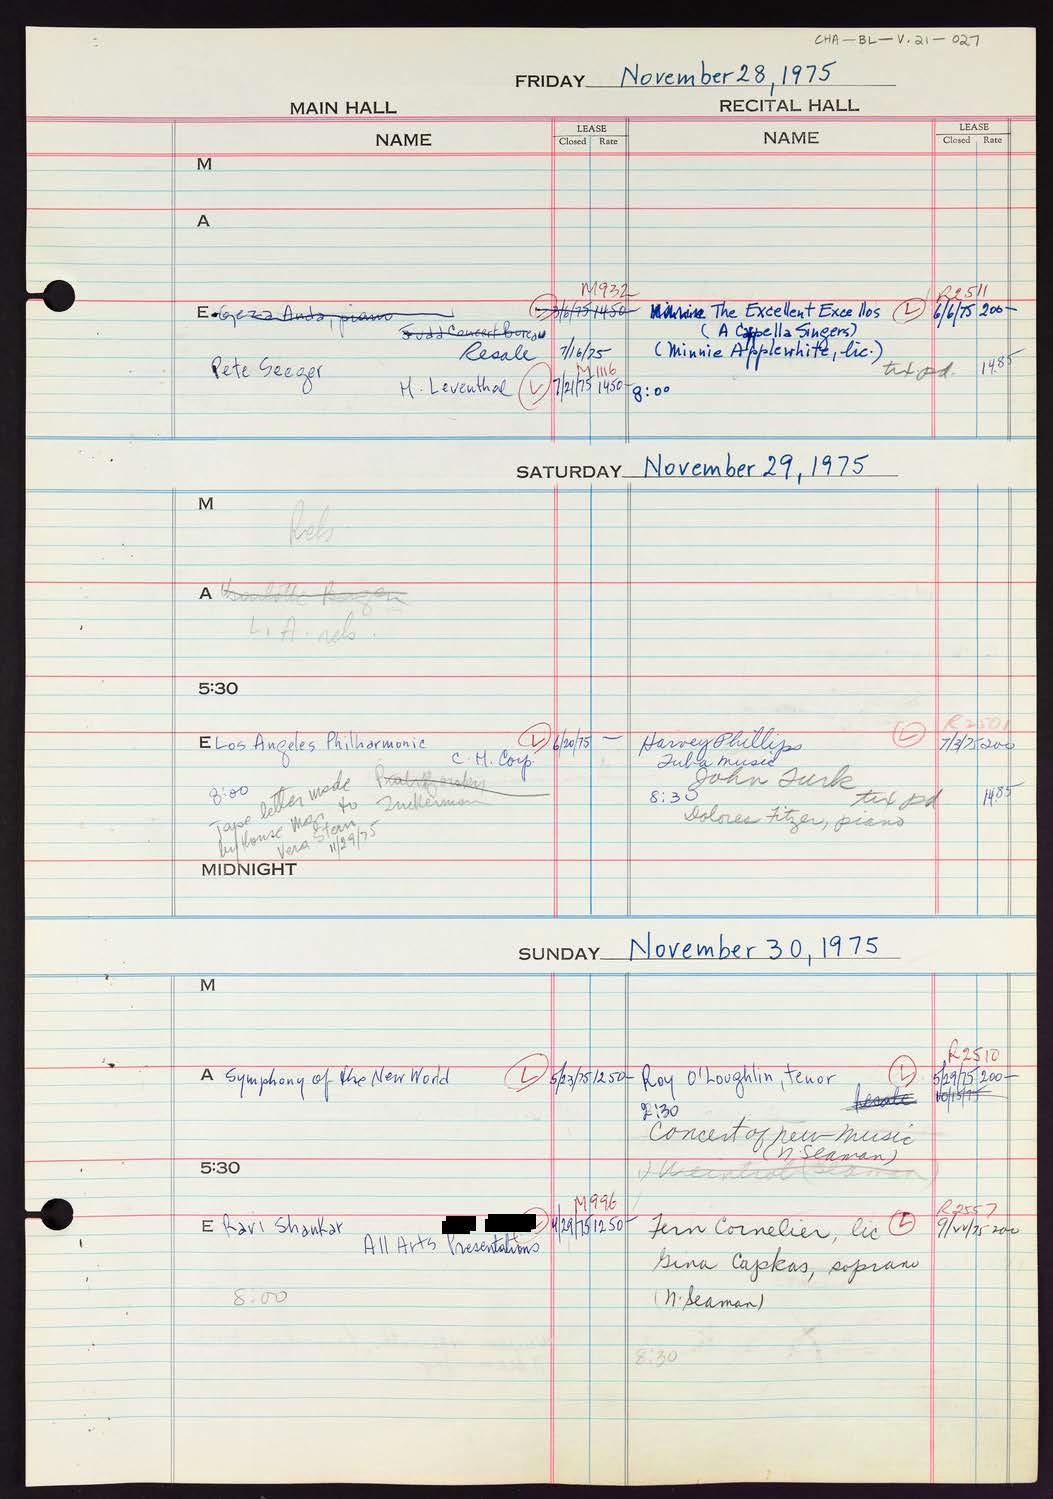 CHA-BL-V.21-027
FRIDAY November 28, 1975
MAIN HALL RECITAL HALL
NAME LEASE Closed Rate NAME LEASE Closed Rate
M
A
M932 R2511
E Geza Anda, piano L 3/6/75 1450- The Excellent Excellos L 6/6/75 200-
Judd Concert Bureau (A Cappella Singers)
Resale 7/16/75 (Minnie Applewhite, lic.)
Pete Seeger M1116 tix pd. 14.85
H. Leventhal L 7/21/75 1450- 8:00
SATURDAY November 29, 1975
M
Reh
A
L.A. reh.
5:30
R2501
E Los Angeles Philharmonic L 6/20/75 - Harvey Phillips L 7/3/75 200
C.H. Corp. Tuba music
John Turk
8:00 8:30 tix pd 14.85
Tape letter made Zuckerman Dolores Fitzer, piano
by House Mgr. to
Vera Stern
11/29/75
MIDNIGHT
SUNDAY November 30, 1975
M
R2510
A Symphony of the New World L 5/23/75 1250- Roy O'Loughlin, tenor L 5/29/75 200-
2:30 Resale 10/15/75
Concert of new music
(N. Seaman)
5:30
M996 R2557
E Ravi Shankar 4/29/75 1250- Fern Cornelier, lic L 9/22/75 200
All Arts Presentations
Gina Capkas, soprano
8:00 (N. Seaman)
8:30